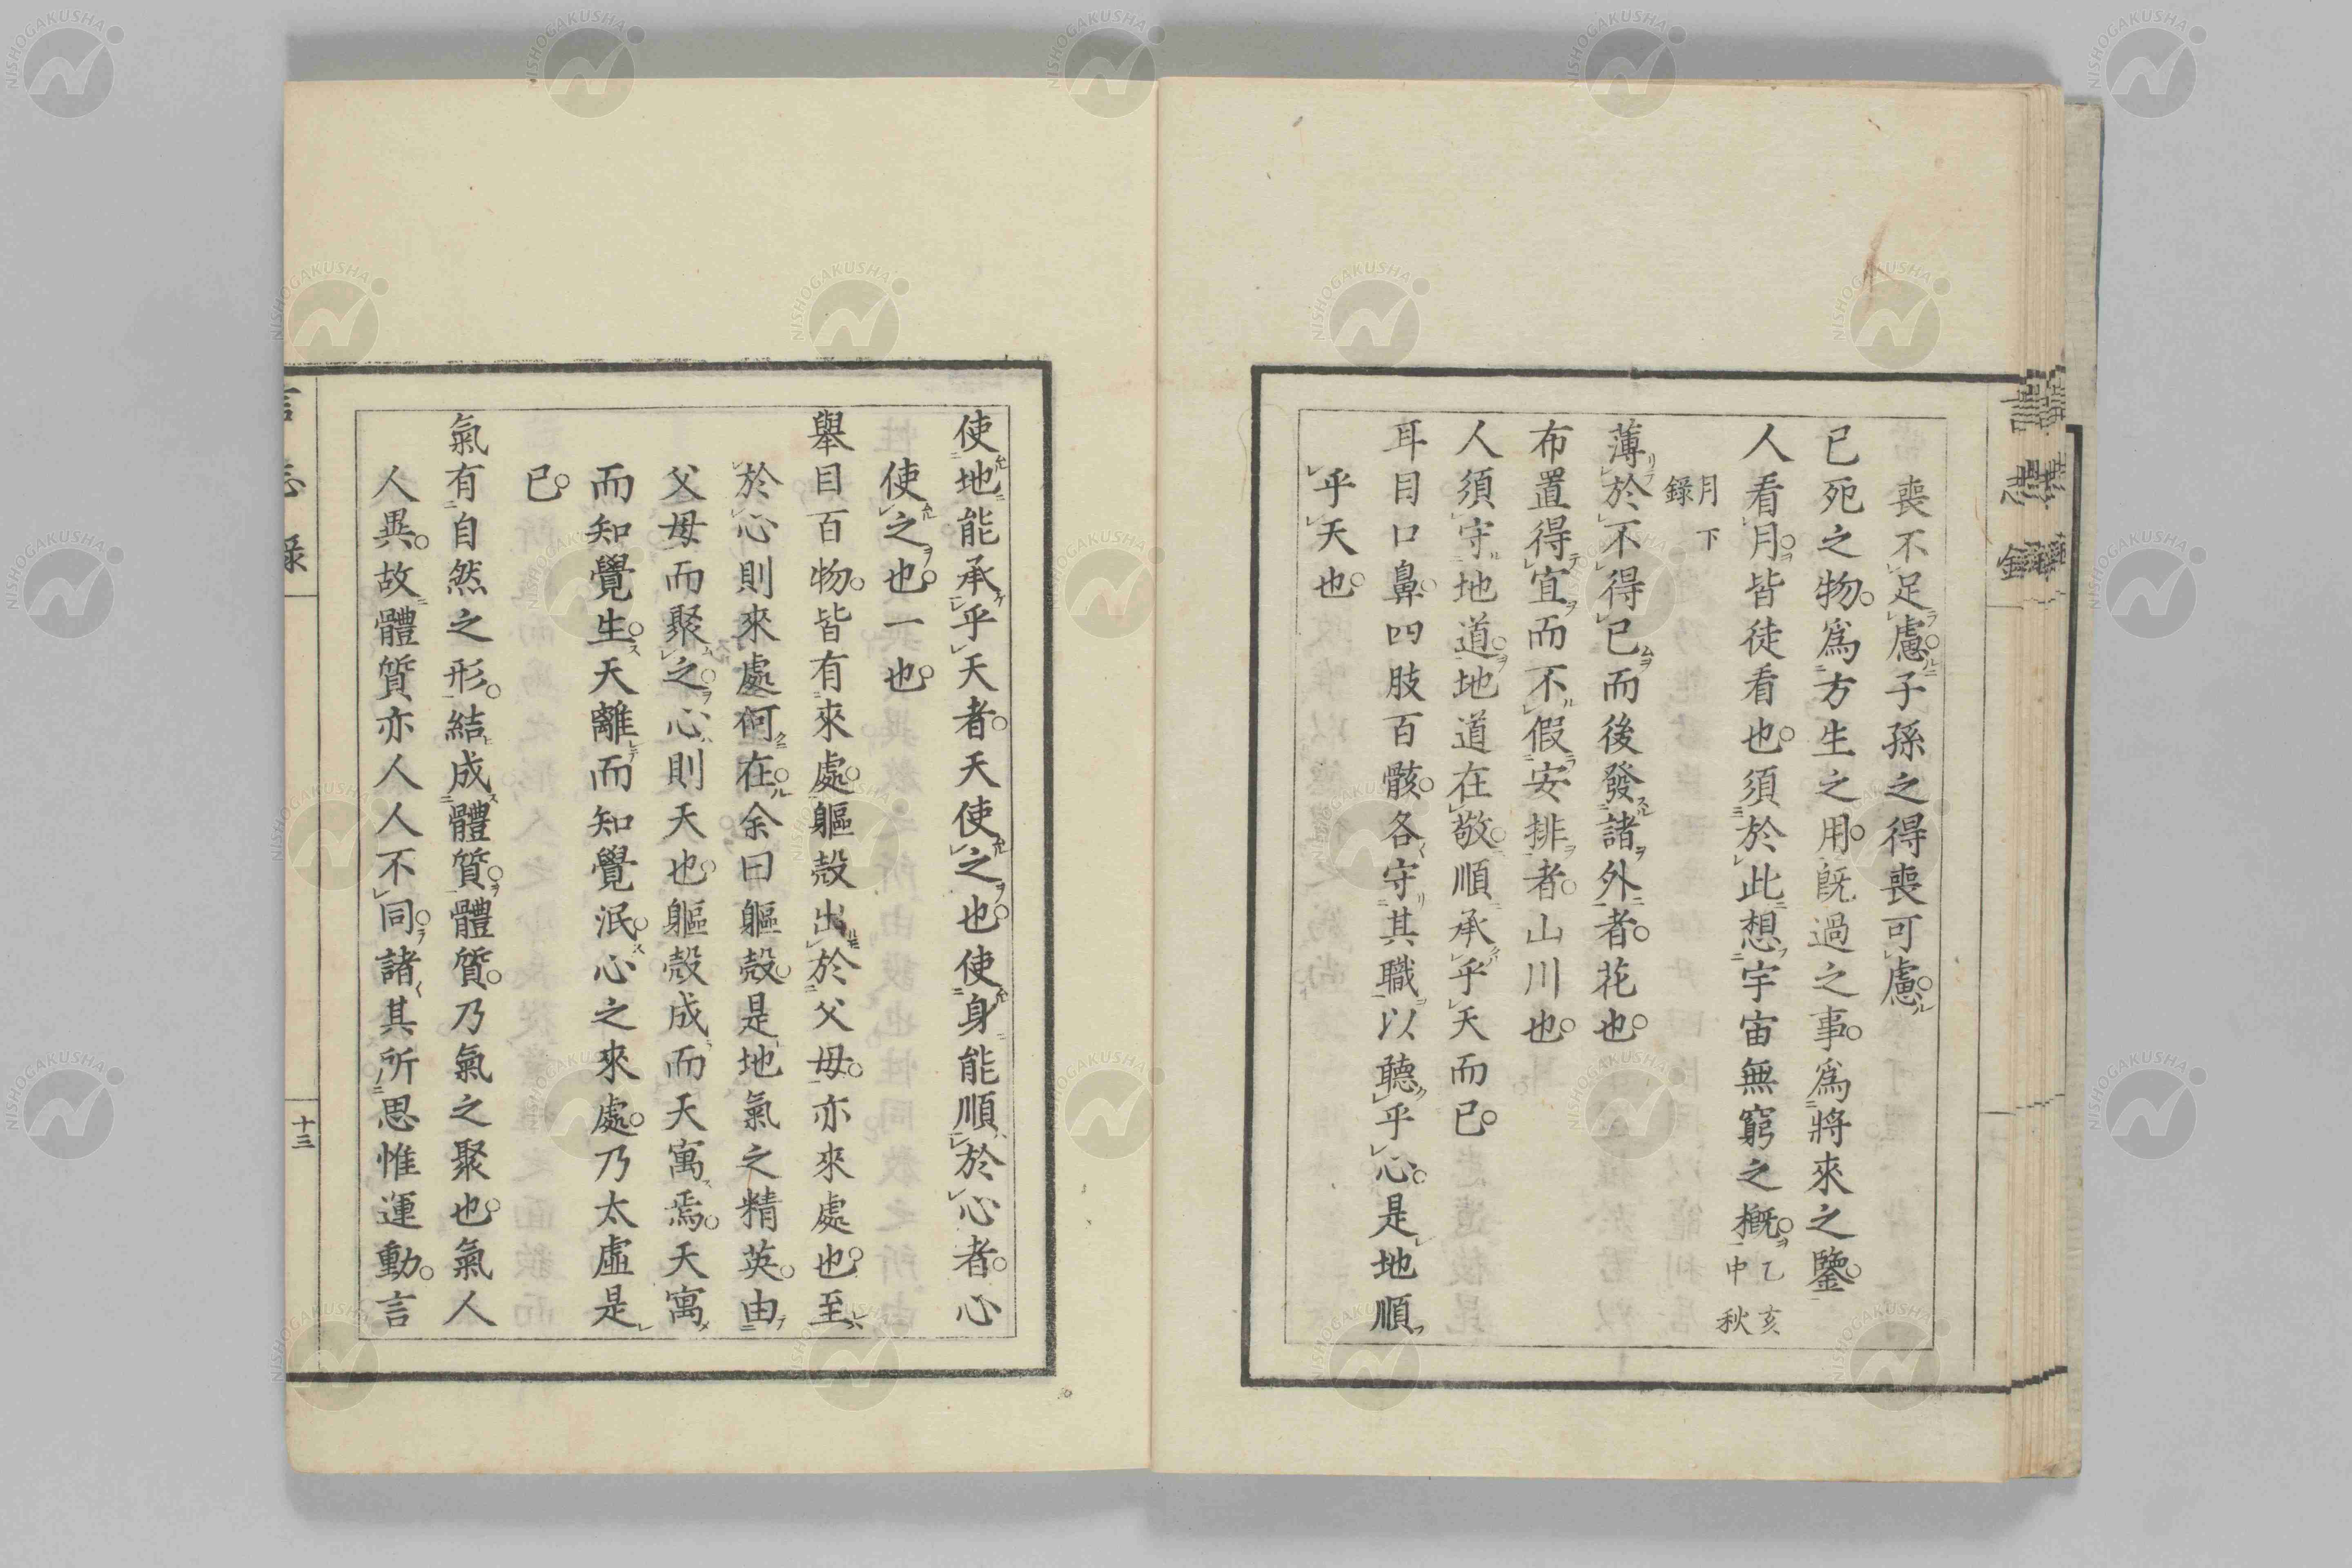 喪不足慮子孫之得喪可慮
已死之物爲方生之用旣過之事爲將來之鑒
人看月皆徒看也須於此想宇宙無窮之概乙亥中秋
月下
錄
薄於不得已而後發諸外者花也
布置得宜而不假安排者山川也
人須守地道地道在敬順承乎天而已
耳目口鼻四肢百骸各守其職以聽乎心是地順
乎天也
使地能承乎天者天使之也使身能順於心者心
使之也一也
舉目百物皆有來處軀殼出於父母亦來處也至
於心則來處何在余曰軀殼是地氣之精英由
父母而聚之心則天也軀殼成而天寓焉天寓
而知覺生天離而知覺泯心之來處乃太虛是
已
氣有自然之形結成體質體質乃氣之聚也氣人
人異故體質亦人人不同諸其所思惟運動言
言志錄
十三
NISHOGAKUSHA